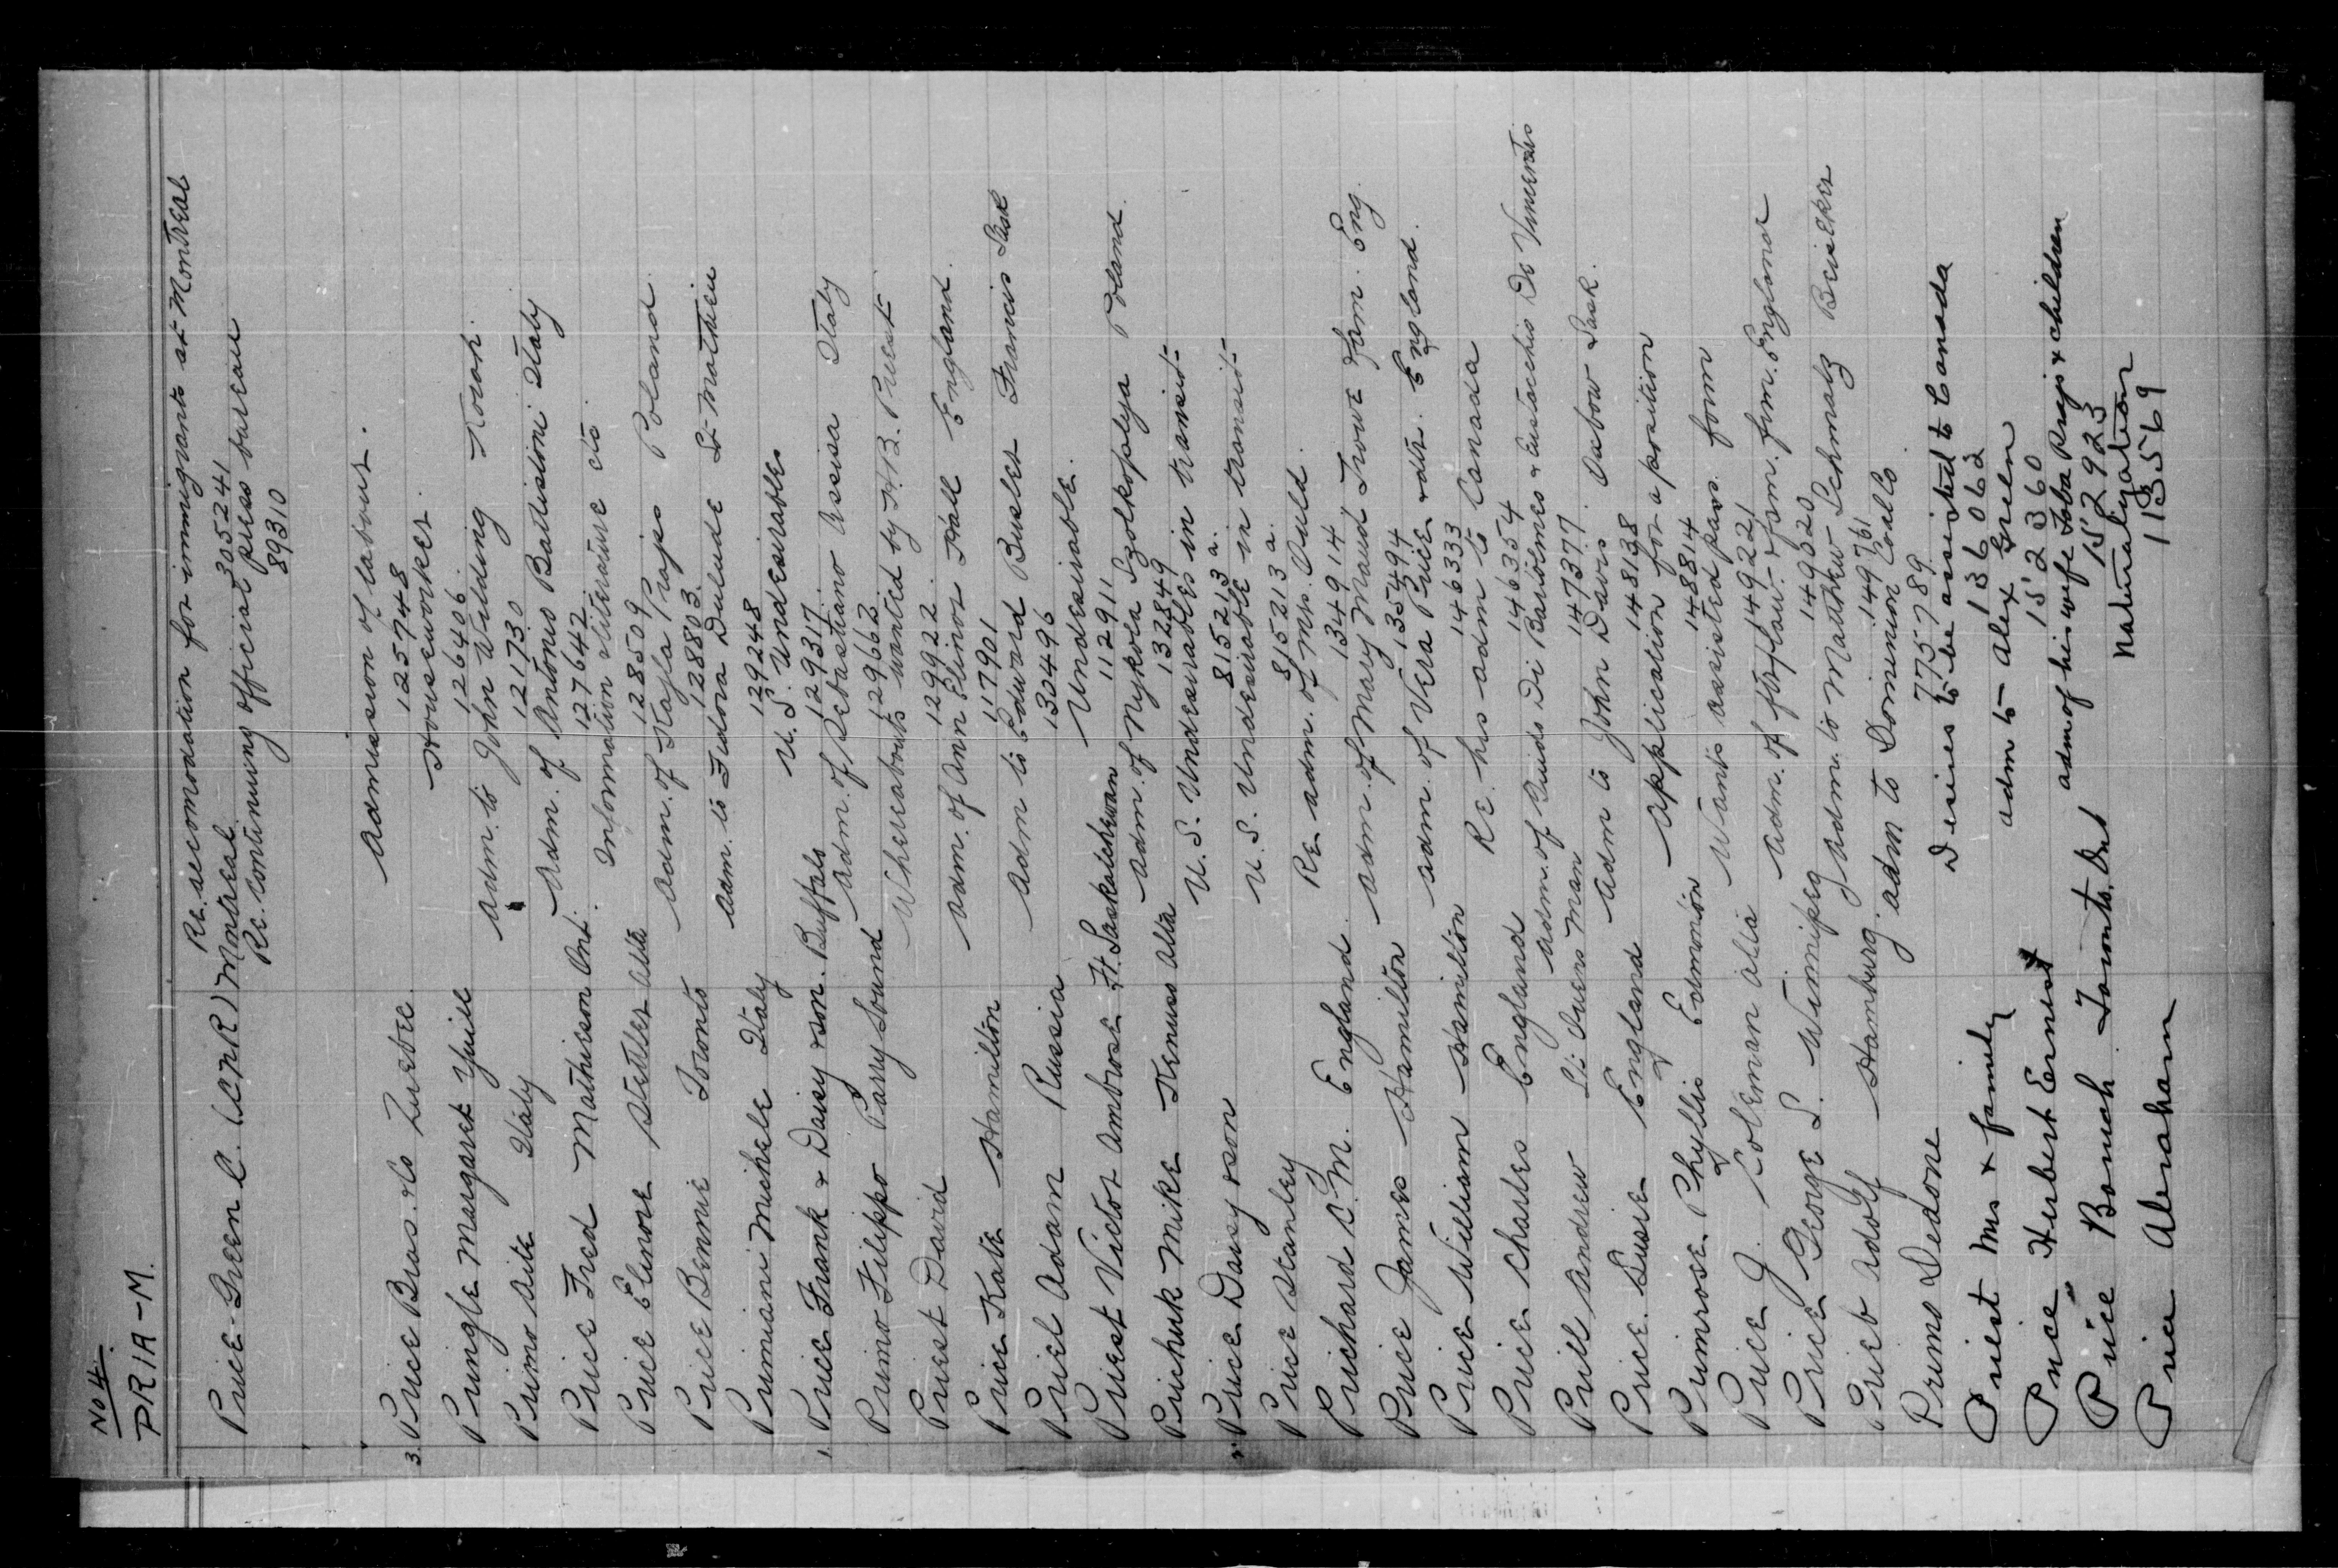 No 4.
PRIA-M.
Re. accomodation for immigrants at Montreal
Price-Green C. (C.P.R.) Montreal. 305241
Re. continuing official press bureau
89310
Admission of labour.
3. Price Bros. & Co Quebec. 125748
Houseworker.
Pringle Margaret Yuill 126406
Adm. to John Wilding
Primo Aite Italy 121730
Adm. of Antonio Battistoni Italy
Price Fred Mathieson Ont. 127642
Information literature etc.
Price Elinore Stettler Alta 128509
Adm. of Kajla Prajs Poland.
Price Bennie Toronto 128803
Adm. to Fedora Dulude St-Mathieu
Primiani Michele Italy 129248
U.S. Undesirables
1. Price Frank & Daisy & son. Buffalo 129317
Adm. of Sebastiano Assisa Italy
Primo Filippo Parry Sound 129662
Whereabouts wanted by H.B. Priest
Priest David 129922
Adm. of Ann Elinor Hall England.
Price Kate Hamilton 117901
Adm to Edward Busler Francis Sask
Priel Adam Russia 130496
Undesirable.
Priest Victor Ambrose Ft. Saskatchewan 112911
Adm. of Nykola Szolkoplya Poland.
Prichuk Mike Kinuso Alta 132849
U.S. Undesirables in transit-
Price Daisy & son 815213 a.
U.S. Undesirable in transit-
Price Stanley 815213 a.
Re adm. of Mrs. Auld.
Prichard C.M. England. 134914
Adm. of Mary Maud Trowe & fam. Eng.
Price James Hamilton 135494
Adm. of Vera Price & dtr. England.
Price William Hamilton 146333
Re. his adm to Canada
Price Charles England 146354
Adm. of Guido Di Bartolomeo & Eustacchio De Vincentis
Prill Andrew St. Owens Man 147377
Adm to John Davis Oxbow Sask.
Price. Susie England 148138
Application for a position
Primrose Phyllis Edmonton 148814
Wants assisted pass. form
Price J. Coleman Alta 149221
Adm. of fr. & flaw. & fam. frm. England
Price George S. Winnipeg 149520
Adm. to Matthew Schmalz Beiseker
Prieb Adolf Hamburg. 149761
Adm to Dominion Coal Co.
Primo Dedone 775789
Desires to be assisted to Canada
Priest Mrs & family 136062
adm to Alex Green
Price Herbert Ernest 152360
adm of his wife Toba Prajs & children
Price Boruch Toronto. Ont 152923
Naturalization
Price Abraham 113569